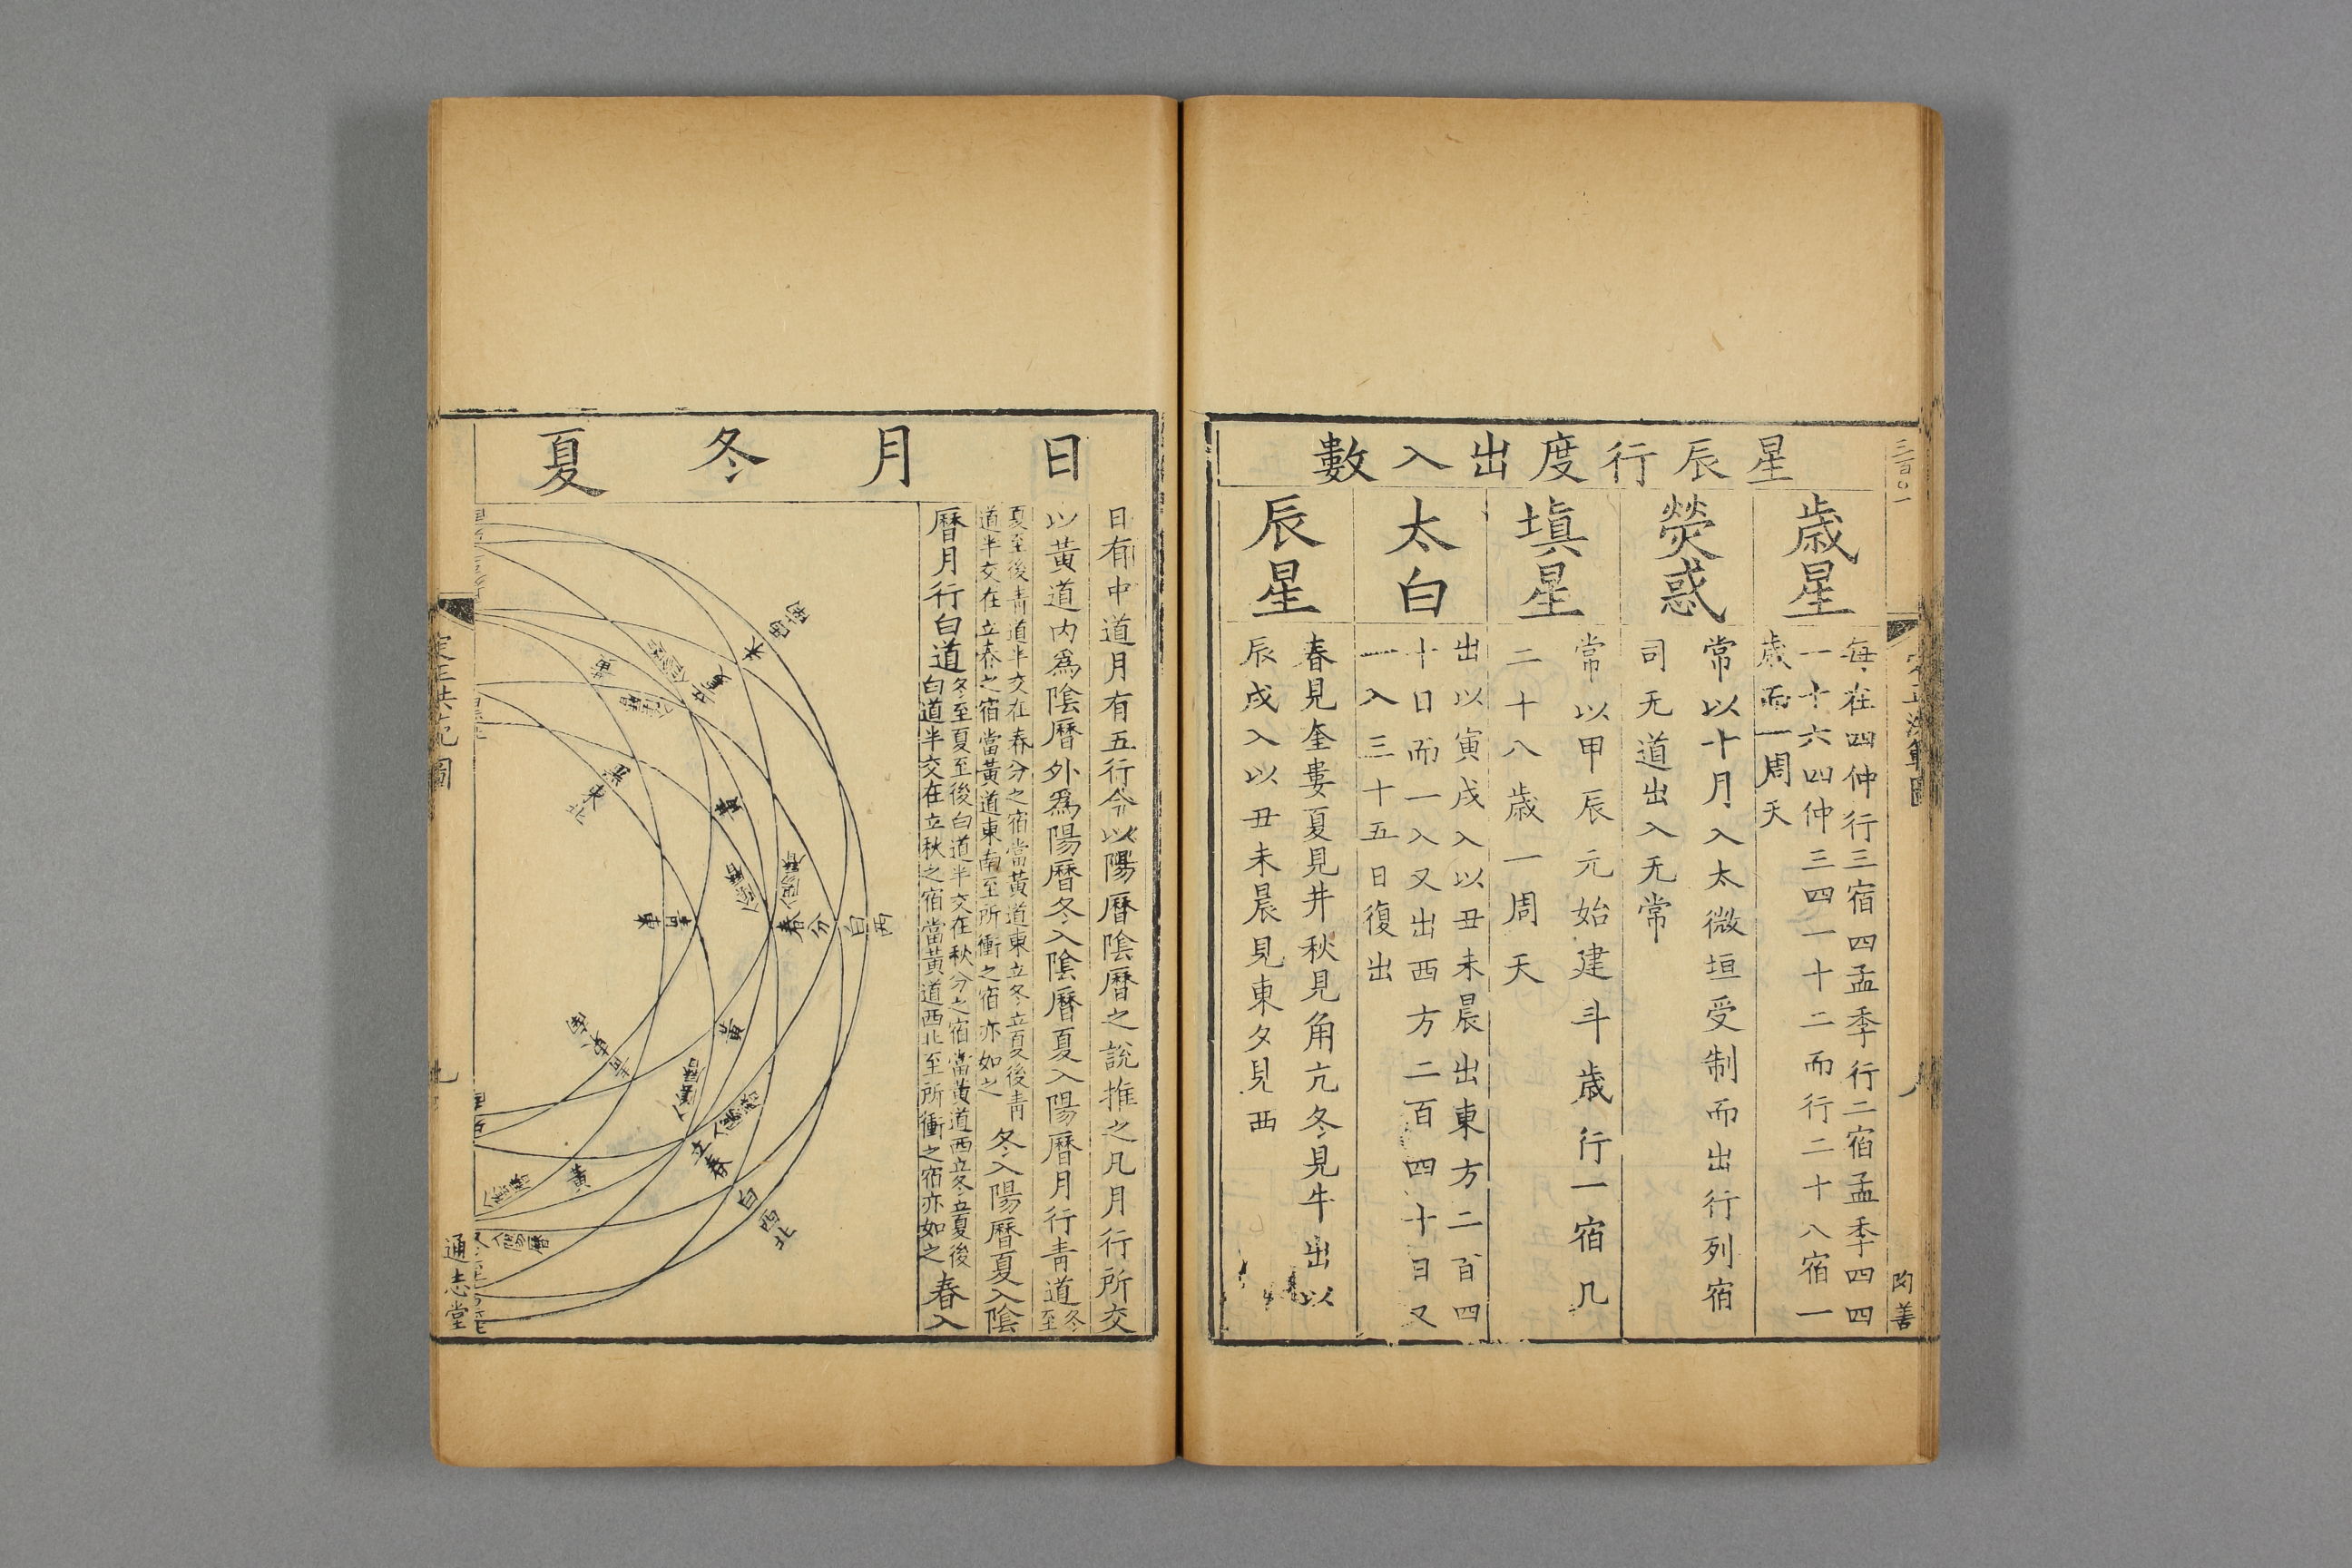 三百〇一
陶善
星辰行度出入數
歲星
每在四仲行三宿四孟季行二宿孟季四四
一十六四仲三四一十二而行二十八宿一
歲而一周天
熒惑
常以十月入太微垣受制而出行列宿
司无道出入无常
塡星
常以甲辰元始建斗歲行一宿几
二十八歲一周天
太白
出以寅戌入以丑未晨出東方二百四
十日而一入又出西方二百四十日又
一入三十五日復出
辰星
春見奎婁夏見井秋見角亢冬見牛出以
辰戌入以丑未晨見東夕見西
日月冬夏
日有中道月有五行今以陽曆陰曆之說推之凡月行所交
以黃道內爲陰曆外爲陽曆冬入陰曆夏入陽曆月行靑道冬至
夏至後靑道半交在春分之宿當黃道東立冬立夏後靑
道半交在立春之宿當黃道東南至所衝之宿亦如之
冬入陽曆夏入陰
曆月行白道
冬至夏至後白道半交在秋分之宿當黃道西立冬立夏後
白道半交在立秋之宿當黃道西北至所衝之宿亦如之
春入
黃
黃
春分
白西
黃
立春
白西北
黃
通志堂